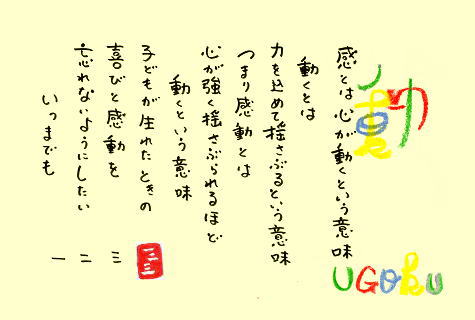 動
感とは 心が動くという意味
動くとは
力を込めて揺さぶるという意味
つまり感動とは
心が強く揺さぶられるほど
動くという意味
子どもが生れたときの
喜びと感動を
忘れないようにしたい
いつまでも
UGOKU
一二三